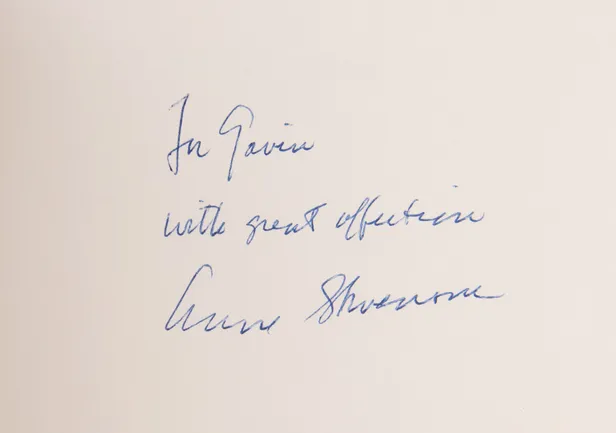 For Gavin
with great affection
Anne Stevenson